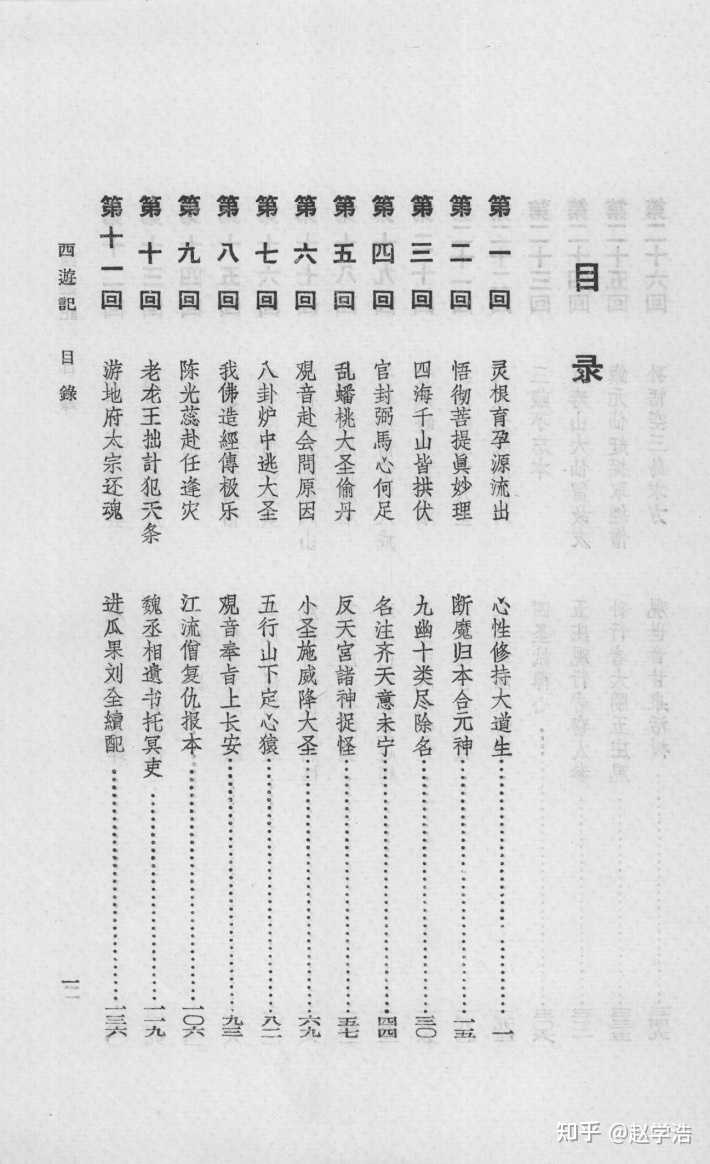 目录
第一回 灵根育孕源流出 心性修持大道生 一
第二回 悟彻菩提眞妙理 断魔归本合元神 一五
第三回 四海千山皆拱伏 九幽十类尽除名 三〇
第四回 官封弼馬心何足 名注齐天意未宁 四四
第五回 乱蟠桃大圣偷丹 反天宮諸神捉怪 五七
第六回 观音赴会問原因 小圣施威降大圣 六九
第七回 八卦炉中逃大圣 五行山下定心猿 八二
第八回 我佛造經傳极乐 观音奉旨上长安 九三
第九回 陈光蕊赴任逢灾 江流僧复仇报本 一〇六
第十回 老龙王拙計犯天条 魏丞相遺书托冥吏 一一九
第十一回 游地府太宗还魂 进瓜果刘全續配 一三六
西遊記 目錄
一
知乎 @赵学浩